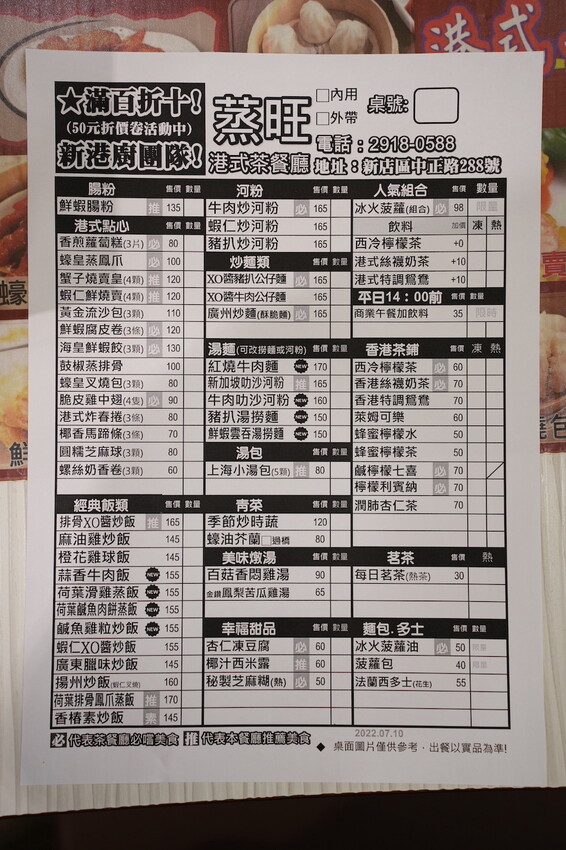 港式
★滿百折十!
(50元折價卷活動中)
新港廚團隊!
蒸旺
港式茶餐廳
□內用
□外帶
桌號:
電話:2918-0588
地址:新店區中正路288號
腸粉 售價 數量
鮮蝦腸粉 推 135
港式點心 售價 數量
香煎蘿蔔糕(3片) 必 80
蠔皇蒸鳳爪 必 100
蟹子燒賣皇(4顆) 推 120
蝦仁鮮燒賣(4顆) 推 120
黃金流沙包(3顆) 110
鮮蝦腐皮卷(3條) 必 120
海皇鮮蝦餃(3顆) 必 130
鼓椒蒸排骨 100
蠔皇叉燒包(3顆) 80
脆皮雞中翅(4隻) 必 90
港式炸春捲(3條) 80
椰香馬蹄條(3條) 70
圓糯芝麻球(3顆) 80
螺絲奶香卷(3顆) 60
經典飯類 售價 數量
排骨XO醬炒飯 推 165
麻油雞炒飯 145
橙花雞球飯 145
蒜香牛肉飯 NEW 155
荷葉滑雞蒸飯 NEW 155
荷葉鹹魚肉餅蒸飯 NEW 155
鹹魚雞粒炒飯 NEW 155
蝦仁XO醬炒飯 155
廣東臘味炒飯 145
揚州炒飯(蝦仁叉燒) 160
荷葉排骨鳳爪蒸飯 推 170
香椿素炒飯 素 145
河粉 售價 數量
牛肉炒河粉 必 165
蝦仁炒河粉 165
豬扒炒河粉 165
炒麵類 售價 數量
XO醬豬扒炒公仔麵 必 165
XO醬牛肉炒公仔麵 165
廣州炒麵(酥脆麵) 必 165
湯麵(可改撈麵或河粉) 售價 數量
紅燒牛肉麵 NEW 170
新加坡叻沙河粉 推 165
牛肉叻沙河粉 NEW 160
豬扒湯撈麵 NEW 150
鮮蝦雲吞湯撈麵 NEW 150
湯包 售價 數量
上海小湯包(5顆) 推 80
青菜 售價 數量
季節炒時蔬 120
蠔油芥蘭□過橋 80
美味燉湯 售價 數量
百菇香悶雞湯 90
金鑽鳳梨苦瓜雞湯 65
幸福甜品 售價 數量
杏仁凍豆腐 必 60
椰汁西米露 推 60
秘製芝麻糊(熱) 必 50
人氣組合 售價 數量
冰火菠蘿(組合) 必 98 限量
飲料 加價 凍 熱
西冷檸檬茶 +0
港式絲襪奶茶 +10
港式特調鴛鴦 +10
平日14:00前 售價 數量
商業午餐加飲料 35 限時
香港茶鋪 售價 凍 熱
西冷檸檬茶 必 60
香港絲襪奶茶 必 70
香港特調鴛鴦 70
萊姆可樂 60
蜂蜜檸檬水 50
蜂蜜檸檬茶 50
鹹檸檬七喜 必 70
檸檬利賓納 必 70
潤肺杏仁茶 70
茗茶 售價 熱
每日茗茶(熱茶) 30
麵包.多士 售價 數量
冰火菠蘿油 必 50 限量
菠蘿包 40 限量
法蘭西多士(花生) 55
必 代表茶餐廳必嚐美食 推 代表本餐廳推薦美食
2022.07.10
◆ 桌面圖片僅供參考,出餐以實品為準!